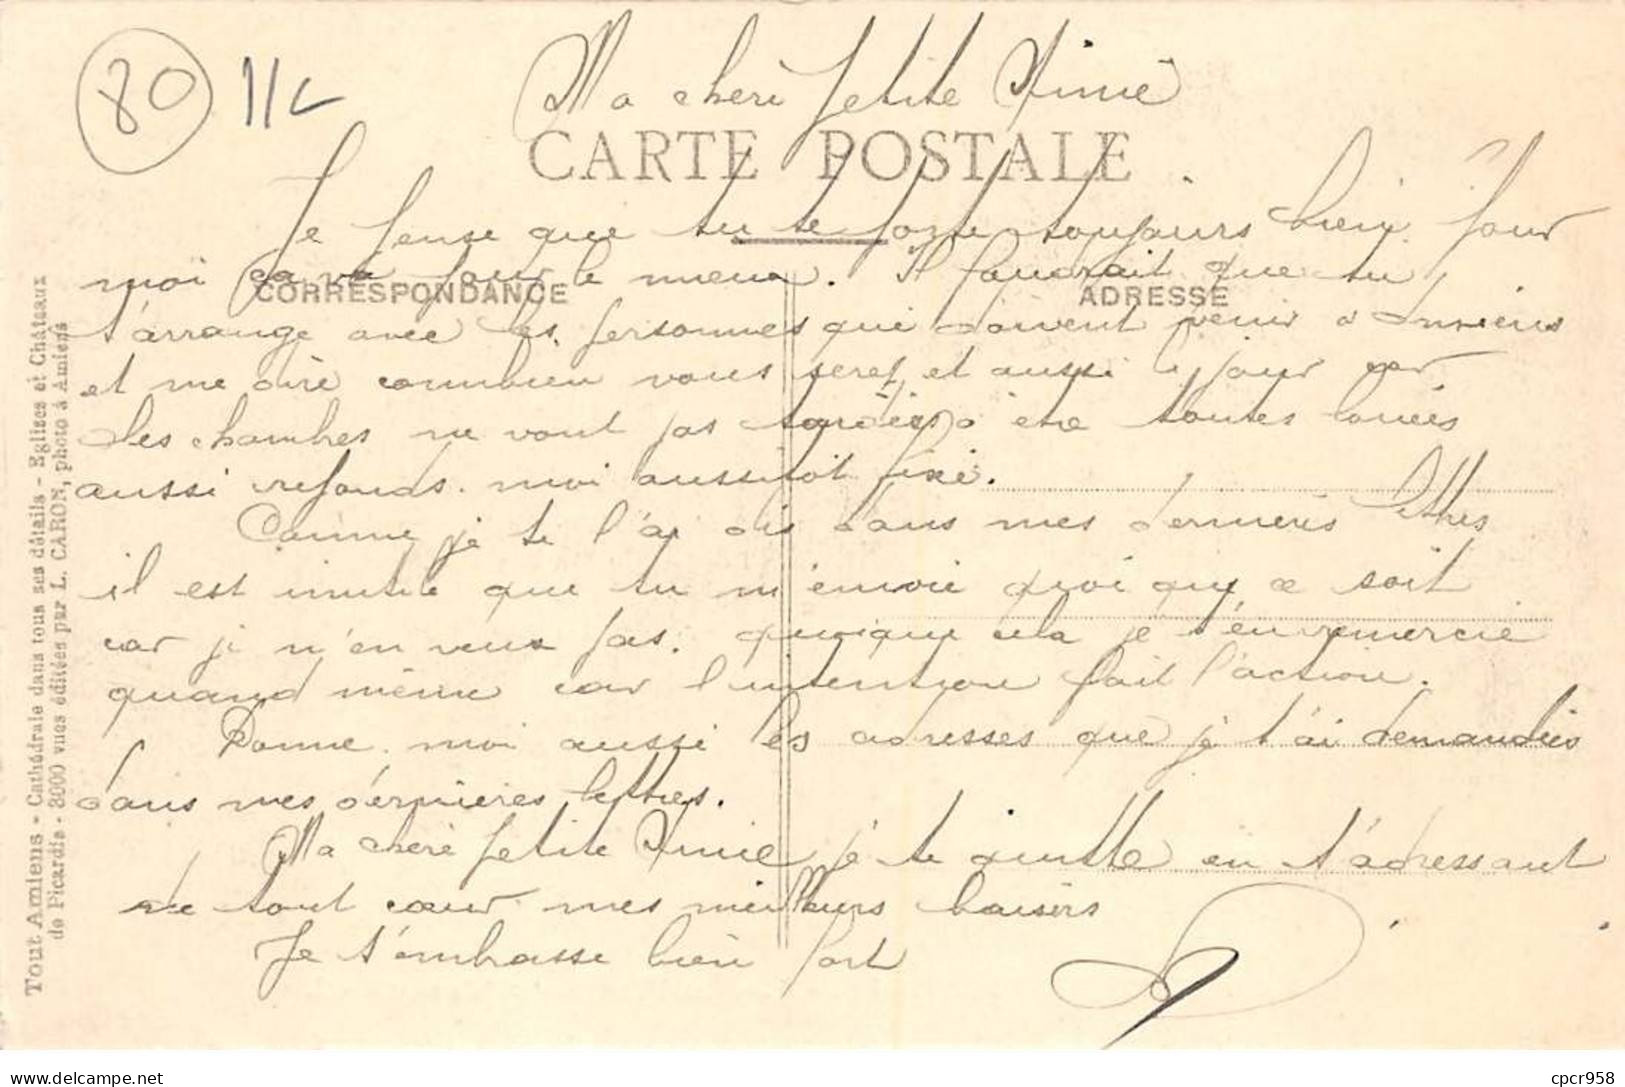 80 11c
Ma cheré petite Aimé
CARTE POSTALE
Je pense que tu te porte toujours bien. Pour
moi ça va pour le mieux. Il faudrait que tu
CORRESPONDANCE
ADRESSE
t'arrange avec les personnes qui doivent venir a Amiens
et me diré combien vous serez et aussi le jour car
les chambres ne vont pas tardées a être toutes louées
aussi reponds. moi aussitot fixé.
Comme je te l'ai dis dans mes derniéres lettres
il est inutile que tu m'envoie quoi que ce soit
car je n'en veux pas. quoique cela je t'en remercie
quand même car l'intention fait l'action.
Donne. moi aussi les adresses que je t'ai demandées
dans mes dernières lettres.
Ma cheré petite Aimé, je te quitte en t'adressant
de tout cœur mes meilleurs baisers
Je t'embrasse bien fort
Tout Amiens - Cathédrale dans tous ses détails - Eglises et Châteaux
de Picardie - 3000 vues éditées par L. CARON, photo à Amiens
cpcr958